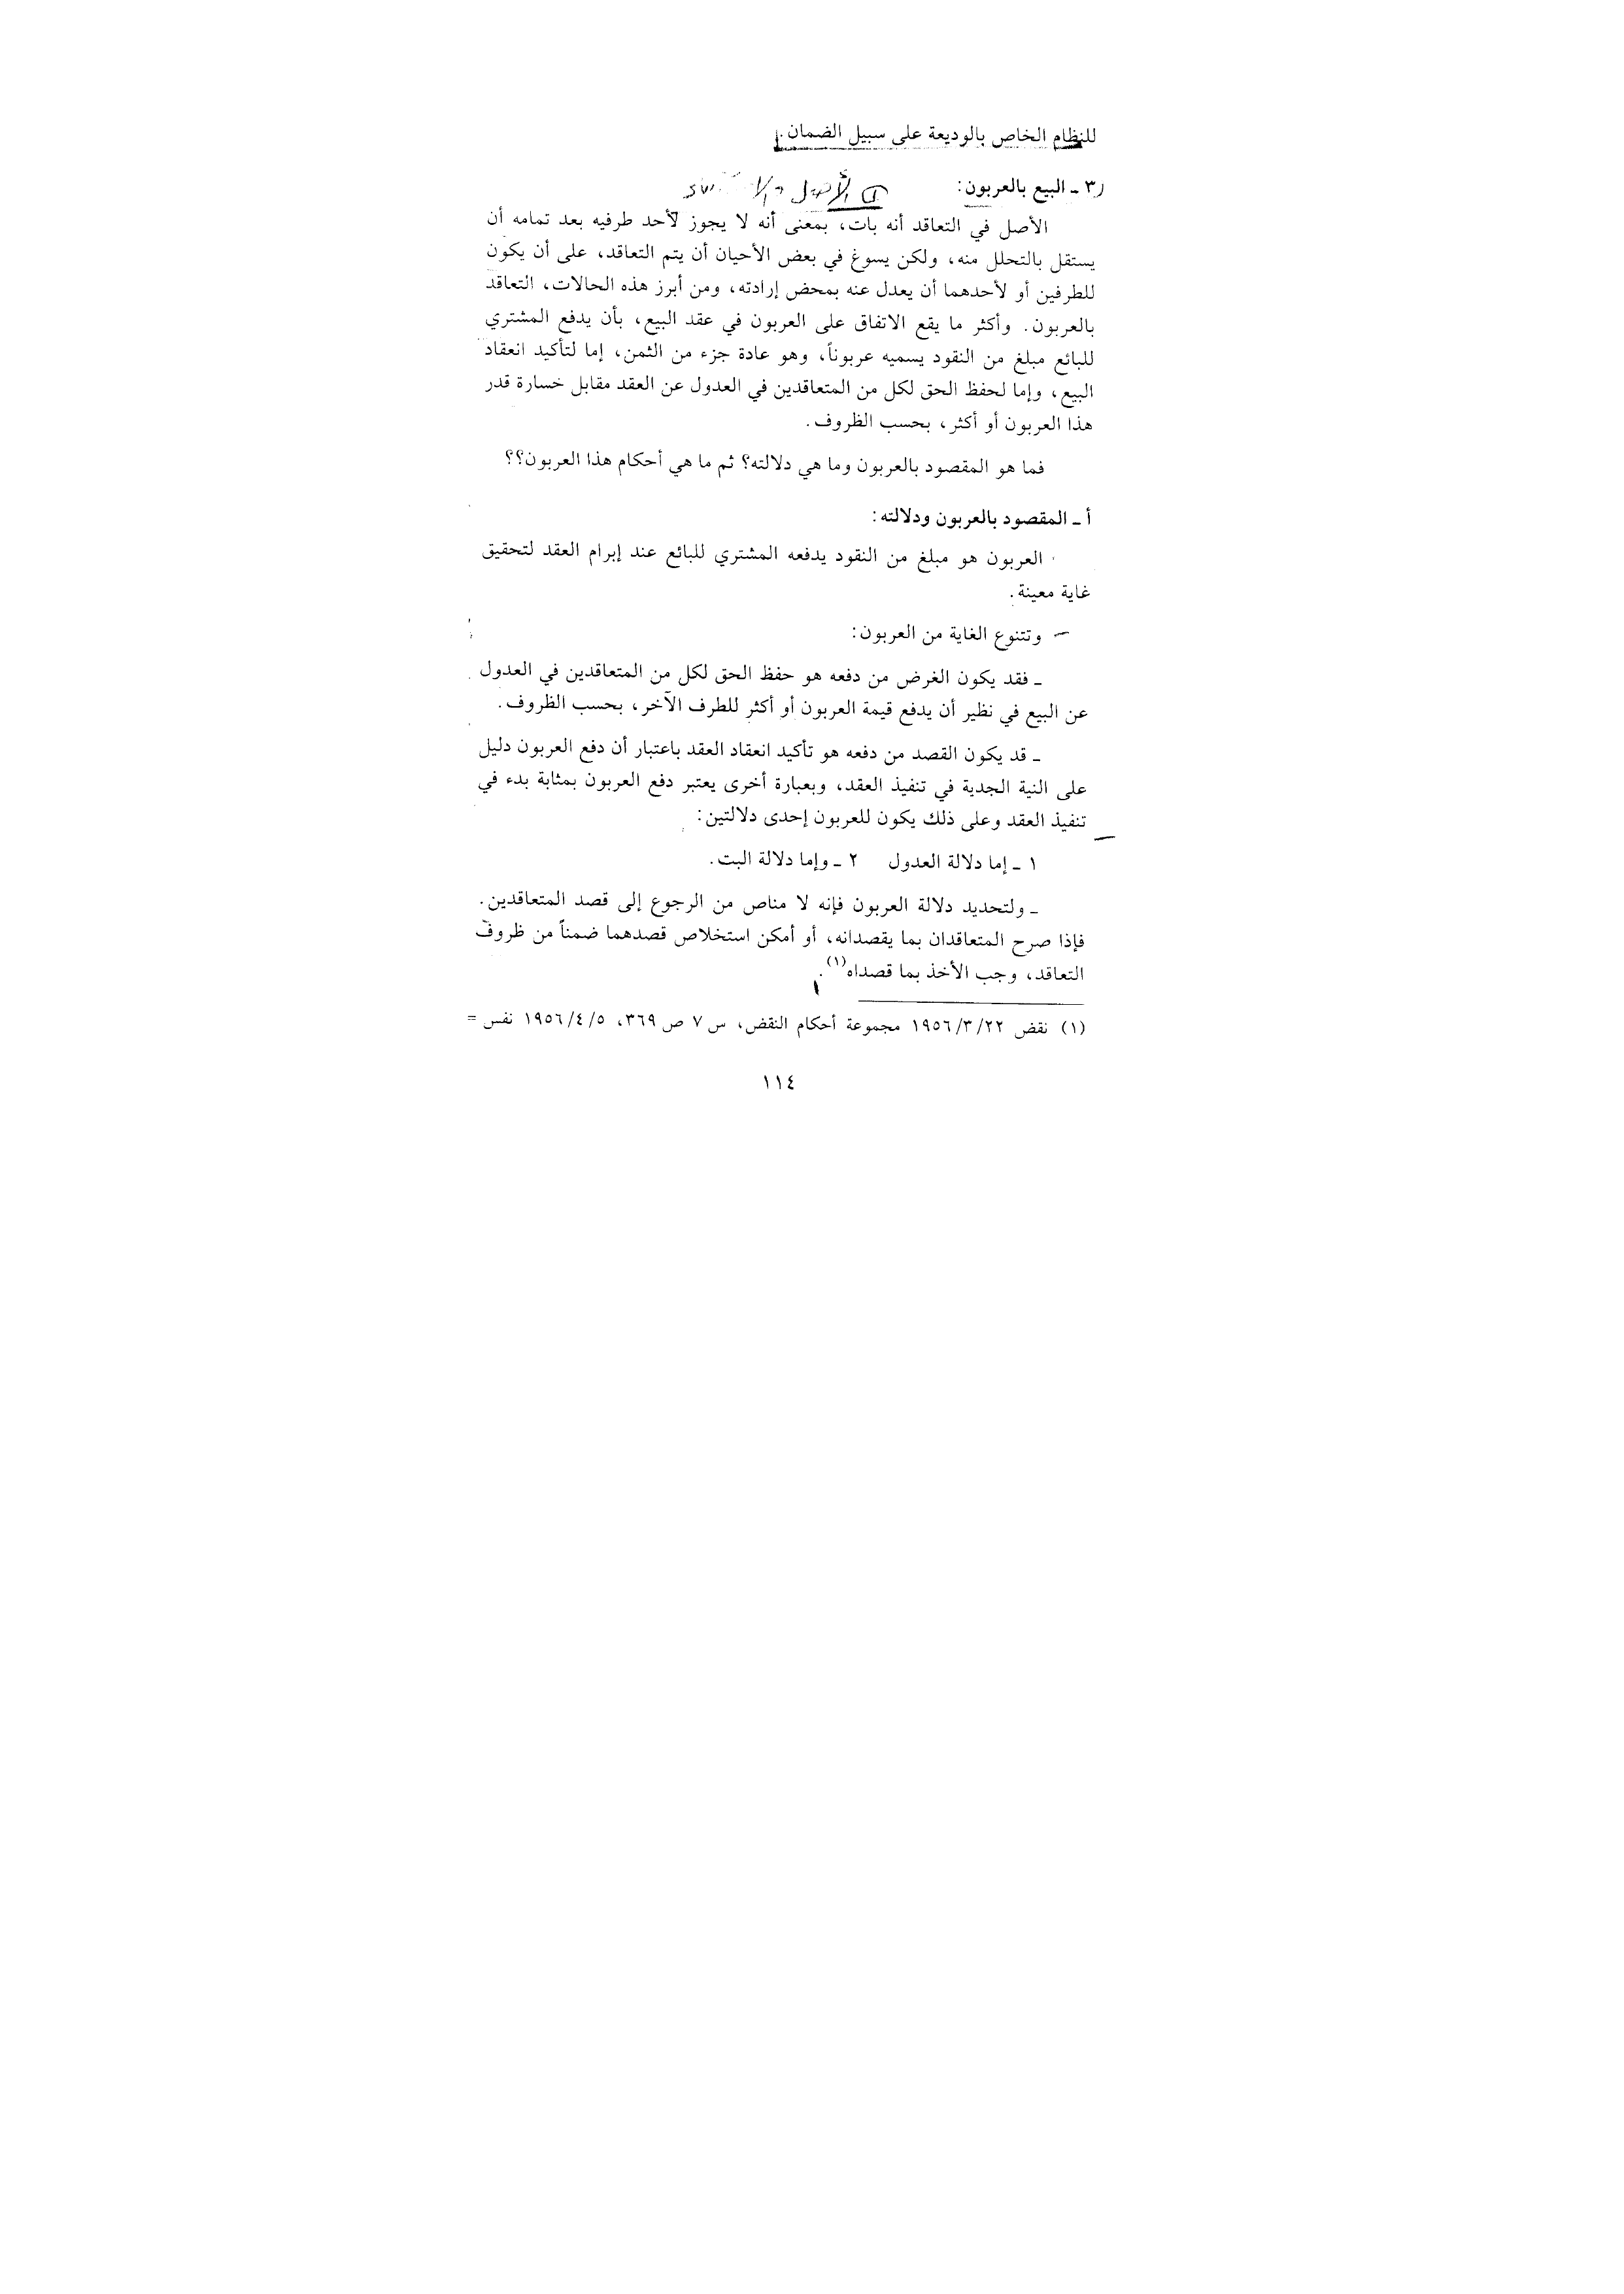 للنظام الخاص بالوديعة على سبيل الضمان.
٣ ـ البيع بالعربون:
الأصل في التعاقد أنه بات، بمعنى أنه لا يجوز لأحد طرفيه بعد تمامه أن
يستقل بالتحلل منه، ولكن يسوغ في بعض الأحيان أن يتم التعاقد، على أن يكون
للطرفين أو لأحدهما أن يعدل عنه بمحض إرادته، ومن أبرز هذه الحالات، التعاقد
بالعربون. وأكثر ما يقع الاتفاق على العربون في عقد البيع، بأن يدفع المشتري
للبائع مبلغ من النقود يسميه عربوناً، وهو عادة جزء من الثمن، إما لتأكيد انعقاد
البيع، وإما لحفظ الحق لكل من المتعاقدين في العدول عن العقد مقابل خسارة قدر
هذا العربون أو أكثر، بحسب الظروف.
فما هو المقصود بالعربون وما هي دلالته؟ ثم ما هي أحكام هذا العربون؟؟
أ ـ المقصود بالعربون ودلالته:
العربون هو مبلغ من النقود يدفعه المشتري للبائع عند إبرام العقد لتحقيق
غاية معينة.
وتتنوع الغاية من العربون:
ـ فقد يكون الغرض من دفعه هو حفظ الحق لكل من المتعاقدين في العدول
عن البيع في نظير أن يدفع قيمة العربون أو أكثر للطرف الآخر، بحسب الظروف.
ـ قد يكون القصد من دفعه هو تأكيد انعقاد العقد باعتبار أن دفع العربون دليل
على النية الجدية في تنفيذ العقد، وبعبارة أخرى يعتبر دفع العربون بمثابة بدء في
تنفيذ العقد وعلى ذلك يكون للعربون إحدى دلالتين:
١ ـ إما دلالة العدول ٢ ـ وإما دلالة البت.
ـ ولتحديد دلالة العربون فإنه لا مناص من الرجوع إلى قصد المتعاقدين.
فإذا صرح المتعاقدان بما يقصدانه، أو أمكن استخلاص قصدهما ضمناً من ظروف
التعاقد، وجب الأخذ بما قصداه(١).
(١) نقض ١٩٥٦/٣/٢٢ مجموعة أحكام النقض، س ٧ ص ٣٦٩، ١٩٥٦/٤/٥ نفس =
١١٤